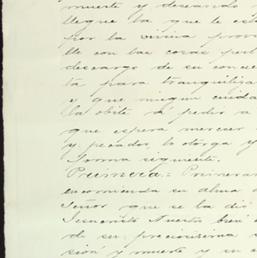 muerte y deseando
llegue la que le es
por la divina prov
lle con las cosas pert
descargo de su concie
ta para tranquiliza
e que ningun cuida
la obste á pedir a
que espera merecer
y pecador, la otorga y
forma siguiente.
Primera: Primeram
encomienda su alma
Señor que se la dió
Jesucristo Nuestro bien
de su preciosisima
sión y muerte y su